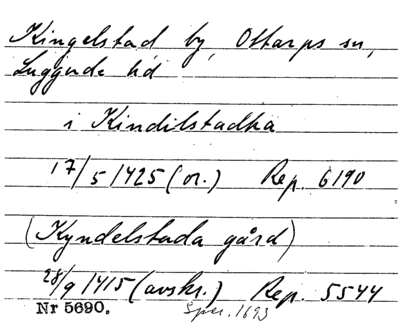 Kingelstad by, Ottarps sn,
Luggude hd
i Kindilstadha
17/5 1425 (or.) Rep. 6190
(Kyndelstada gård)
28/9 1415 (avskr.) Rep. 5544
Nr 5690. Sper. 1693